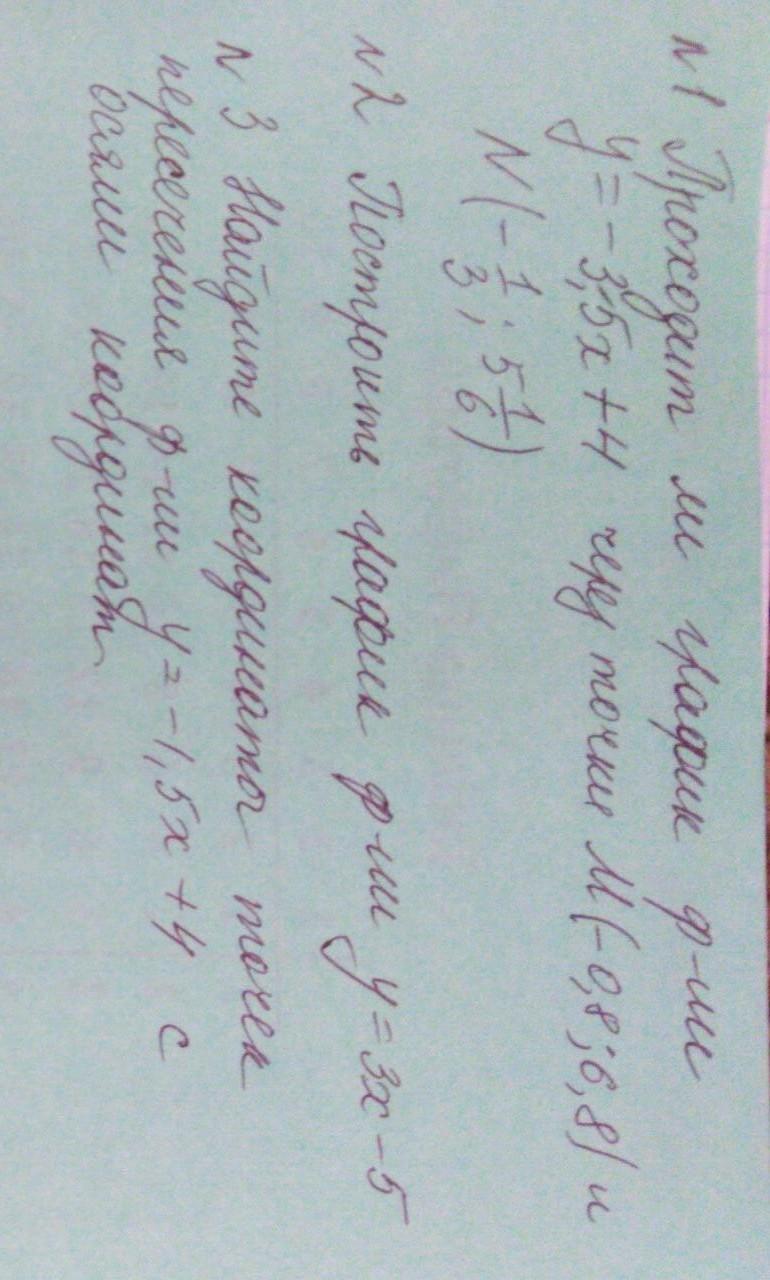 №1 Проходит ли график ф-ии
y = -3,5x + 4 через точки M(-0,8; 6,8) и
N(-1/3; 5 1/6)
№2 Построить график ф-ии y = 3x - 5
№3 Найдите координаты точек
пересечения ф-ии y = -1,5x + 4 с
осями координат